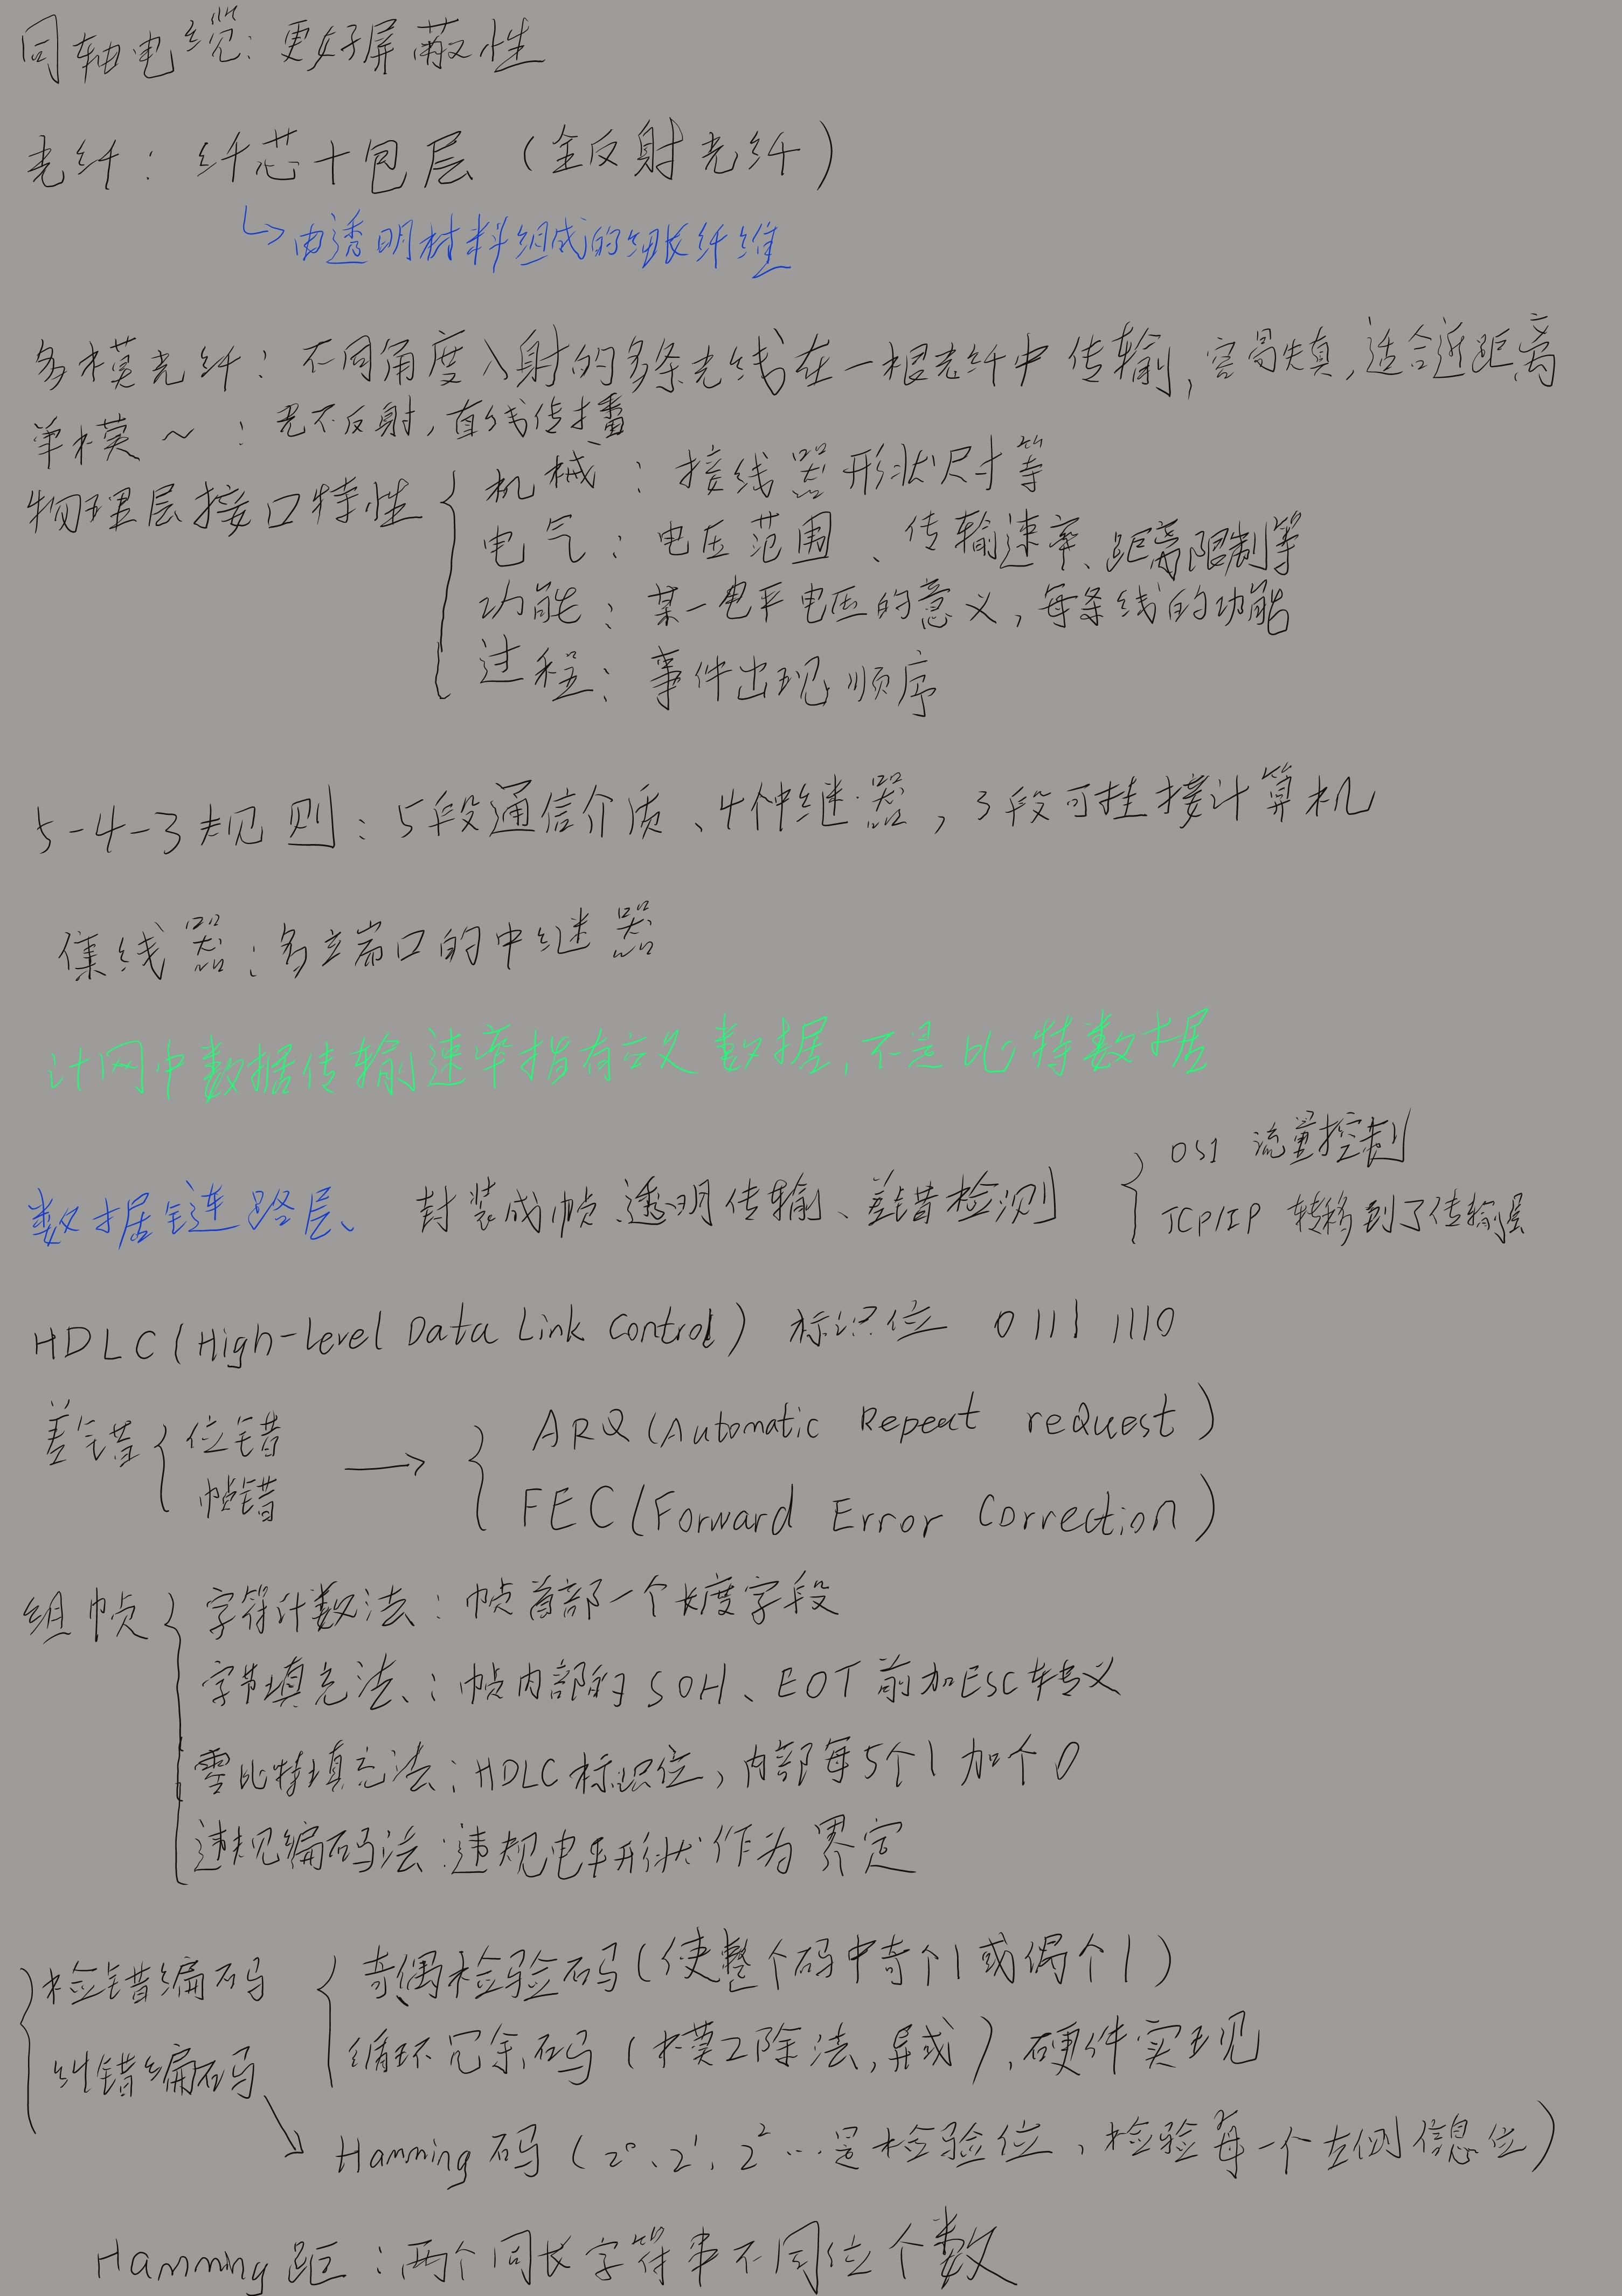 同轴电缆:更好屏蔽性
光纤:纤芯+包层(全反射光纤)
↳由透明材料组成的细长纤维
多模光纤:不同角度入射的多条光线在一根光纤中传输,容易失真,适合近距离
单模~:光不反射,直线传播
物理层接口特性
机械:接线器形状尺寸等
电气:电压范围、传输速率、距离限制等
功能:某一电平电压的意义,每条线的功能
过程:事件出现顺序
5-4-3规则:5段通信介质、4个中继器,3段可挂接计算机
集线器:多端口的中继器
计网中数据传输速率指有效数据,不是比特数据
数据链路层、封装成帧、透明传输、差错检测
OSI 流量控制
TCP/IP 转移到了传输层
HDLC(High-level Data Link Control) 标识位 0111 1110
差错
位错
帧错
→
ARQ(Automatic Repeat reQuest)
FEC(Forward Error Correction)
组帧
字符计数法:帧首部一个长度字段
字节填充法:帧内部的SOH、EOT前加ESC转义
零比特填充法:HDLC标识位,内部每5个1加个0
违规编码法:违规电平形状作为界定
检错编码
奇偶检验码(使整个码中奇个1或偶个1)
循环冗余码(模2除法,异或),硬件实现
纠错编码
Hamming码(2⁰、2¹、2²…是检验位,检验每一个左侧信息位)
Hamming距:两个同长字符串不同位个数